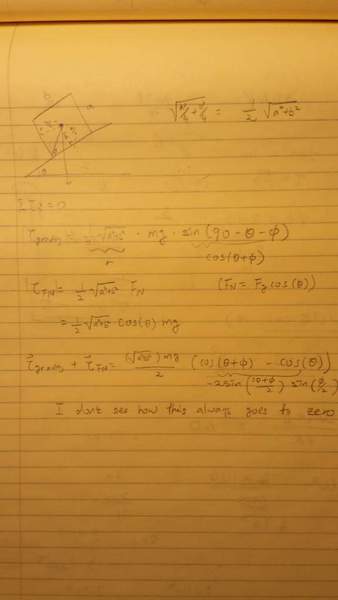 b
a
θ
√(a²/4 + b²/4) = 1/2 √(a²+b²)
Στ = 0
τ_gravity = 1/2 √(a²+b²) · mg · sin(90 - θ - φ)
r
cos(θ+φ)
τ_FN = 1/2 √(a²+b²) F_N (F_N = F_g cos(θ))
= 1/2 √(a²+b²) cos(θ) mg
τ_gravity + τ_FN = (√(a²+b²)) mg / 2 (cos(θ+φ) - cos(θ))
-2 sin((2θ+φ)/2) sin(φ/2)
I dont see how this always goes to zero